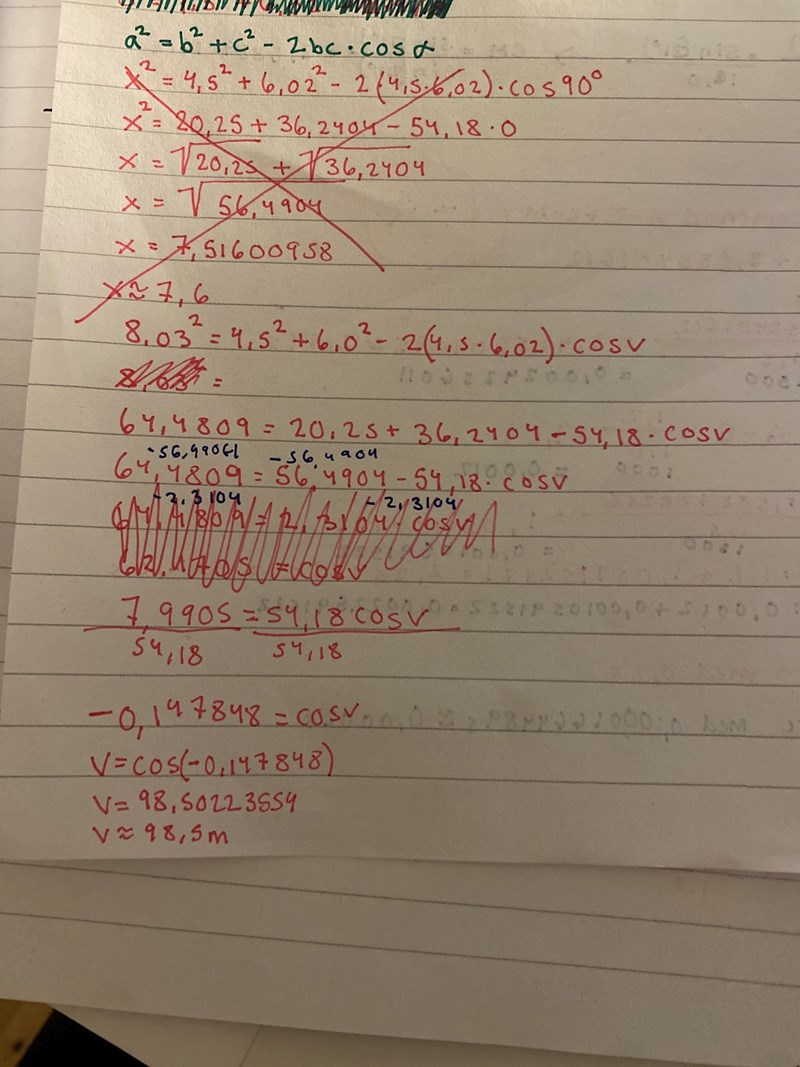 a² = b² + c² - 2bc · cos α
x² = 4,5² + 6,02² - 2(4,5·6,02) · cos 90°
x² = 20,25 + 36,2404 - 54,18 · 0
x = √20,25 + √36,2404
x = √56,4904
x = 7,51600958
x ≈ 7,6
8,03² = 4,5² + 6,0² - 2(4,5 · 6,02) · cosv
=
64,4809 = 20,25 + 36,2404 - 54,18 · cosv
-56,4904
64,4809 = 56,4904 - 54,18 · cosv
-2,3104 -2,3104
7,9905 = 54,18 cosv
54,18 54,18
-0,147848 = cosv
v = cos(-0,147848)
v = 98,50223554
v ≈ 98,5m